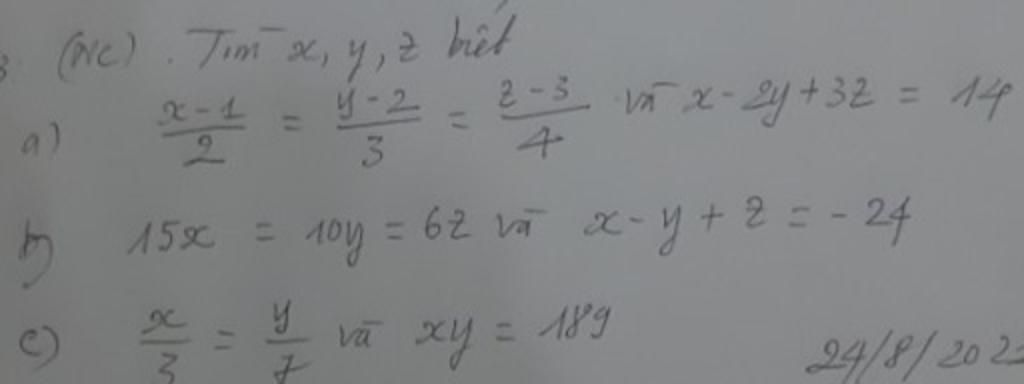 3. (NC). Tìm x, y, z biết
a) \frac{x-1}{2} = \frac{y-2}{3} = \frac{z-3}{4} và x-2y+3z = 14
b) 15x = 10y = 6z và x-y+z = -24
c) \frac{x}{3} = \frac{y}{7} và xy = 189
24/8/202